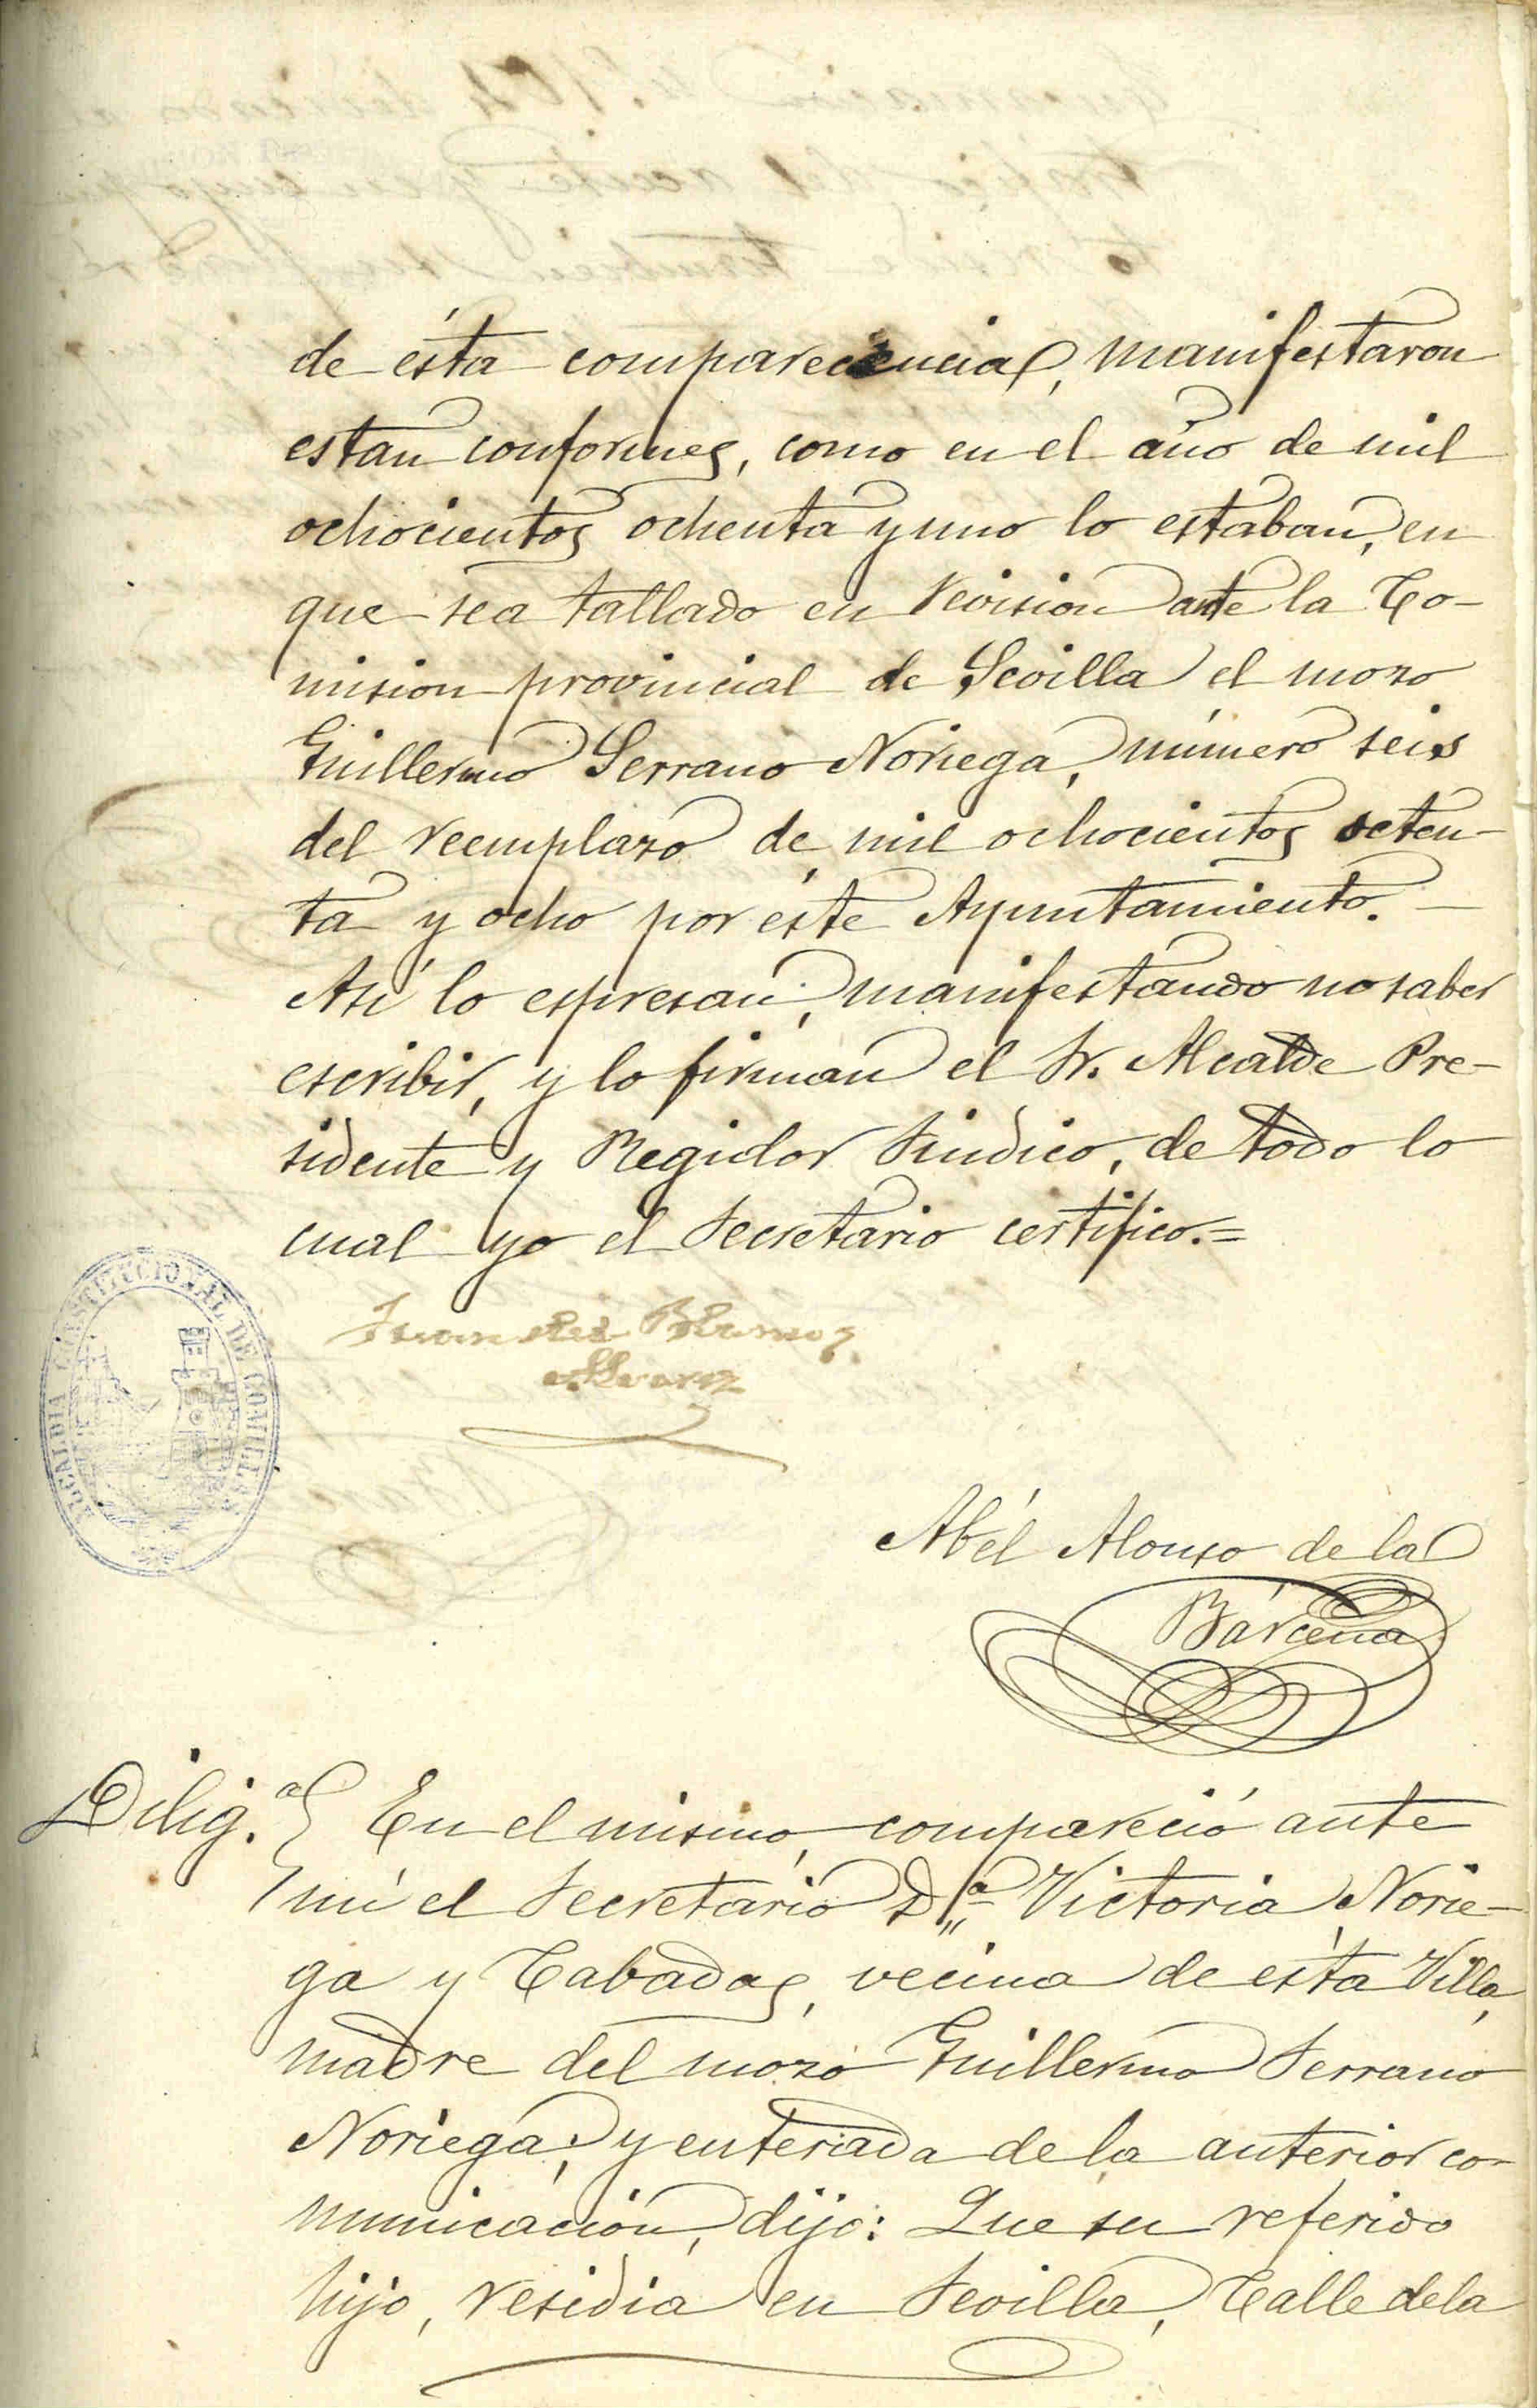 de ésta comparecencia, manifestaron
estan conformes, como en el año de mil
ochocientos ochenta y uno lo estaban, en
que sea tallado en revision ante la Co-
mision provincial de Sevilla el mozo
Guillermo Serrano Noriega, número seis
del reemplazo de mil ochocientos seten-
ta y ocho por éste Ayuntamiento.—
Asi lo espresan, manifestando no saber
escribir, y lo firman el Sr. Alcalde Pre-
sidente y Regidor Sindico, de todo lo
cual yo el Secretario certifico.=
ALCALDIA CONSTITUCIONAL DE COMILLAS
Juan
Abél Alonso de la
Bárcena
Dilig.ª En el mismo, compareció ante
mi el Secretario D.ª Victoria Norie-
ga y Cabadas, vecina de ésta Villa,
madre del mozo Guillermo Serrano
Noriega; y enterada de la anterior co-
municación, dijo: Que su referido
hijo, residia en Sevilla, Calle de la